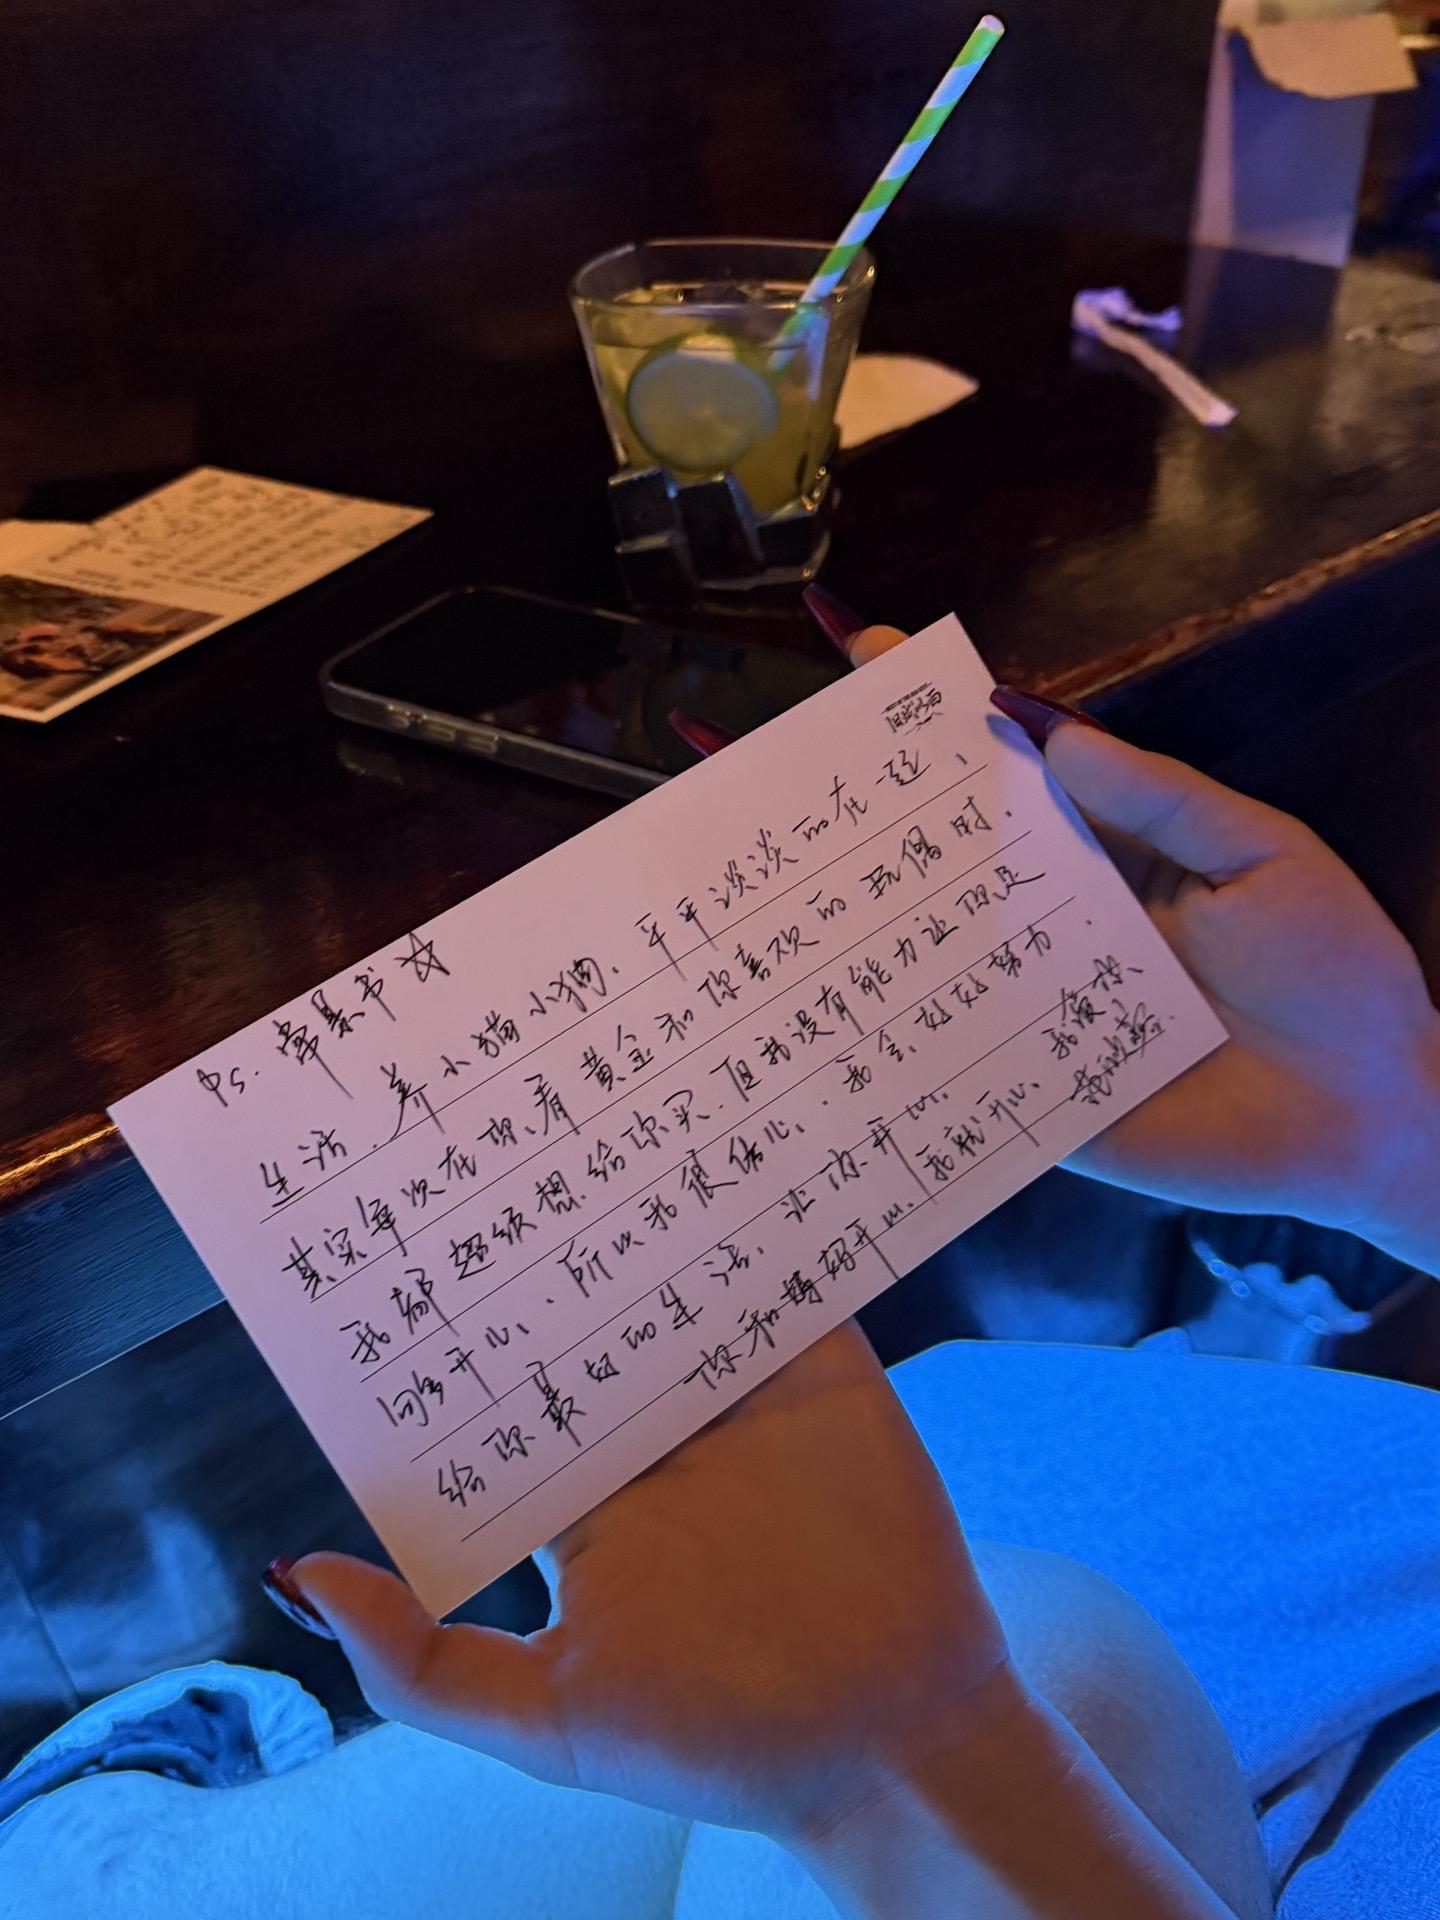 Ps. 带景书☆
生活. 养小猫小狗. 平平淡淡的在一起、
其实每次在你看黄金和你喜欢的玩偶时.
我都超级想给你买. 但我没有能力让你足
够开心、所以我很伤心、我会好好努力.
给你最好的生活. 让你开心. 我爱你、
你和妈妈开心. 我就开心